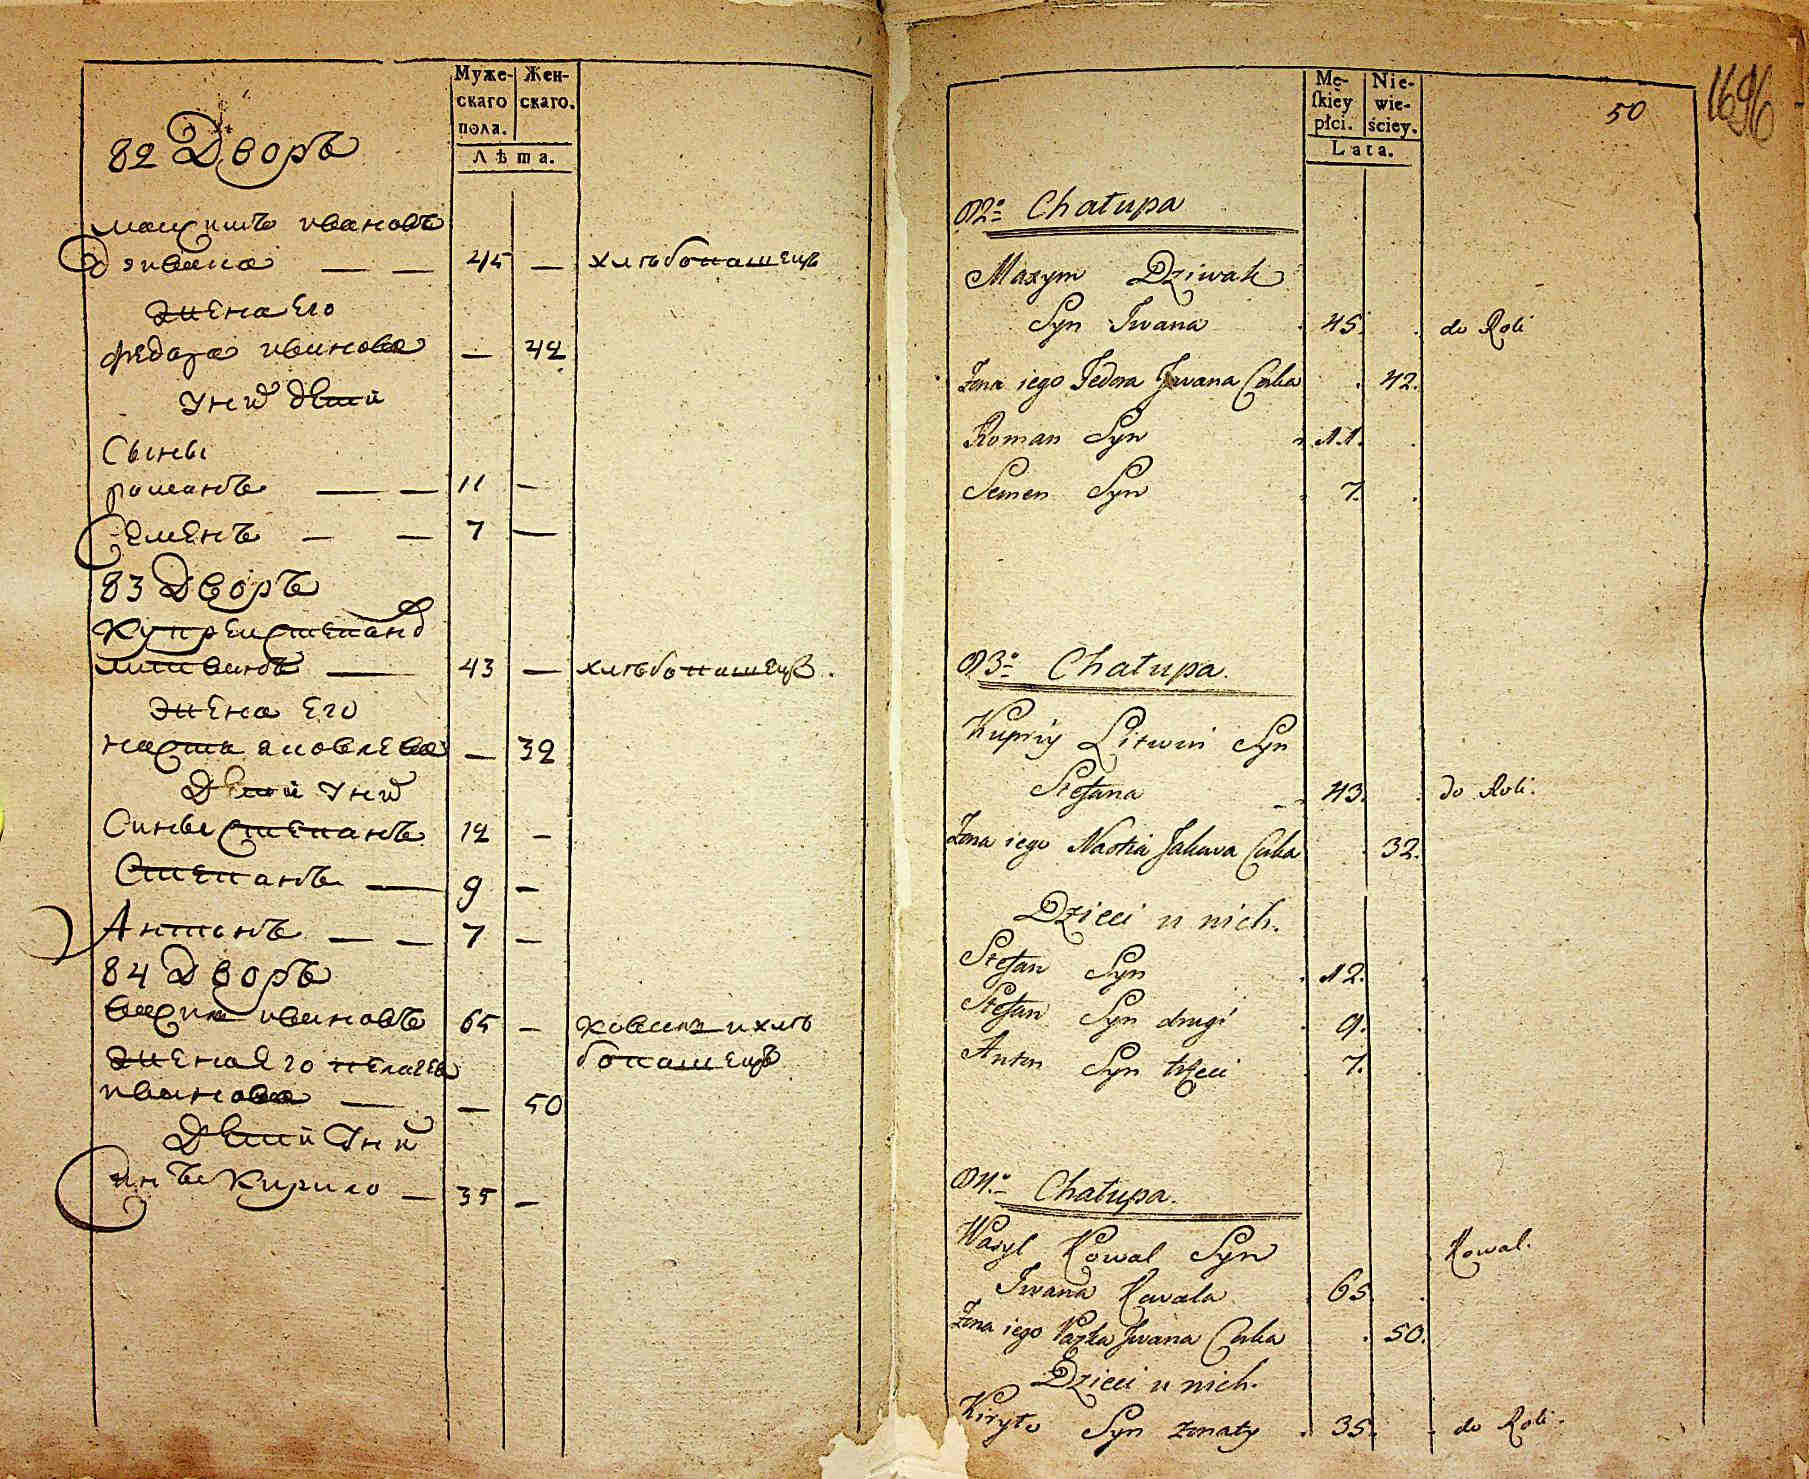 Муже- Жен-
скаго скаго.
пола.
Лѣта.
82 Дворъ
Максимъ Ивановъ
Дзивака — — 45 — хлѣбопашецъ
жена Его
Федора Иванова — 42
у них дети
Сыны
романъ — — 11 —
Семенъ — — 7 —
83 Дворъ
Куприй Степановъ
литвинъ — 43 — хлѣбопашецъ.
жена Его
Настя яковлева — 32
Дети у них
Сины Степанъ 12 —
Степанъ — 9 —
Антонъ — — 7 —
84 Дворъ
Василь Ивановъ 65 — коваль и хлѣ
жена Его пелагея бопашецъ
Иванова — — 50
Дети у них
Синъ Кирило — 35 —
Mę- Nie-
ſkiey wie-
płci. ściey.
Lata.
50
1696
82º Chałupa
Maxym Dziwak
Syn Iwana 45. do Roli
Żona iego Fedora Iwana Córka 42.
Roman Syn 11.
Semen Syn 7.
83º Chałupa.
Kupriy Litwin Syn
Stefana 43. do Roli.
Żona iego Nastia Jakowa Córka 32.
Dzieci u nich.
Stefan Syn 12.
Stefan Syn drugi 9.
Anton Syn trzeci 7.
84º Chałupa.
Wasyl Kowal Syn Kowal.
Iwana Kowala 65.
Żona iego Iwana Córka 50.
Dzieci u nich.
Kiryło Syn żonaty 35. do Roli.